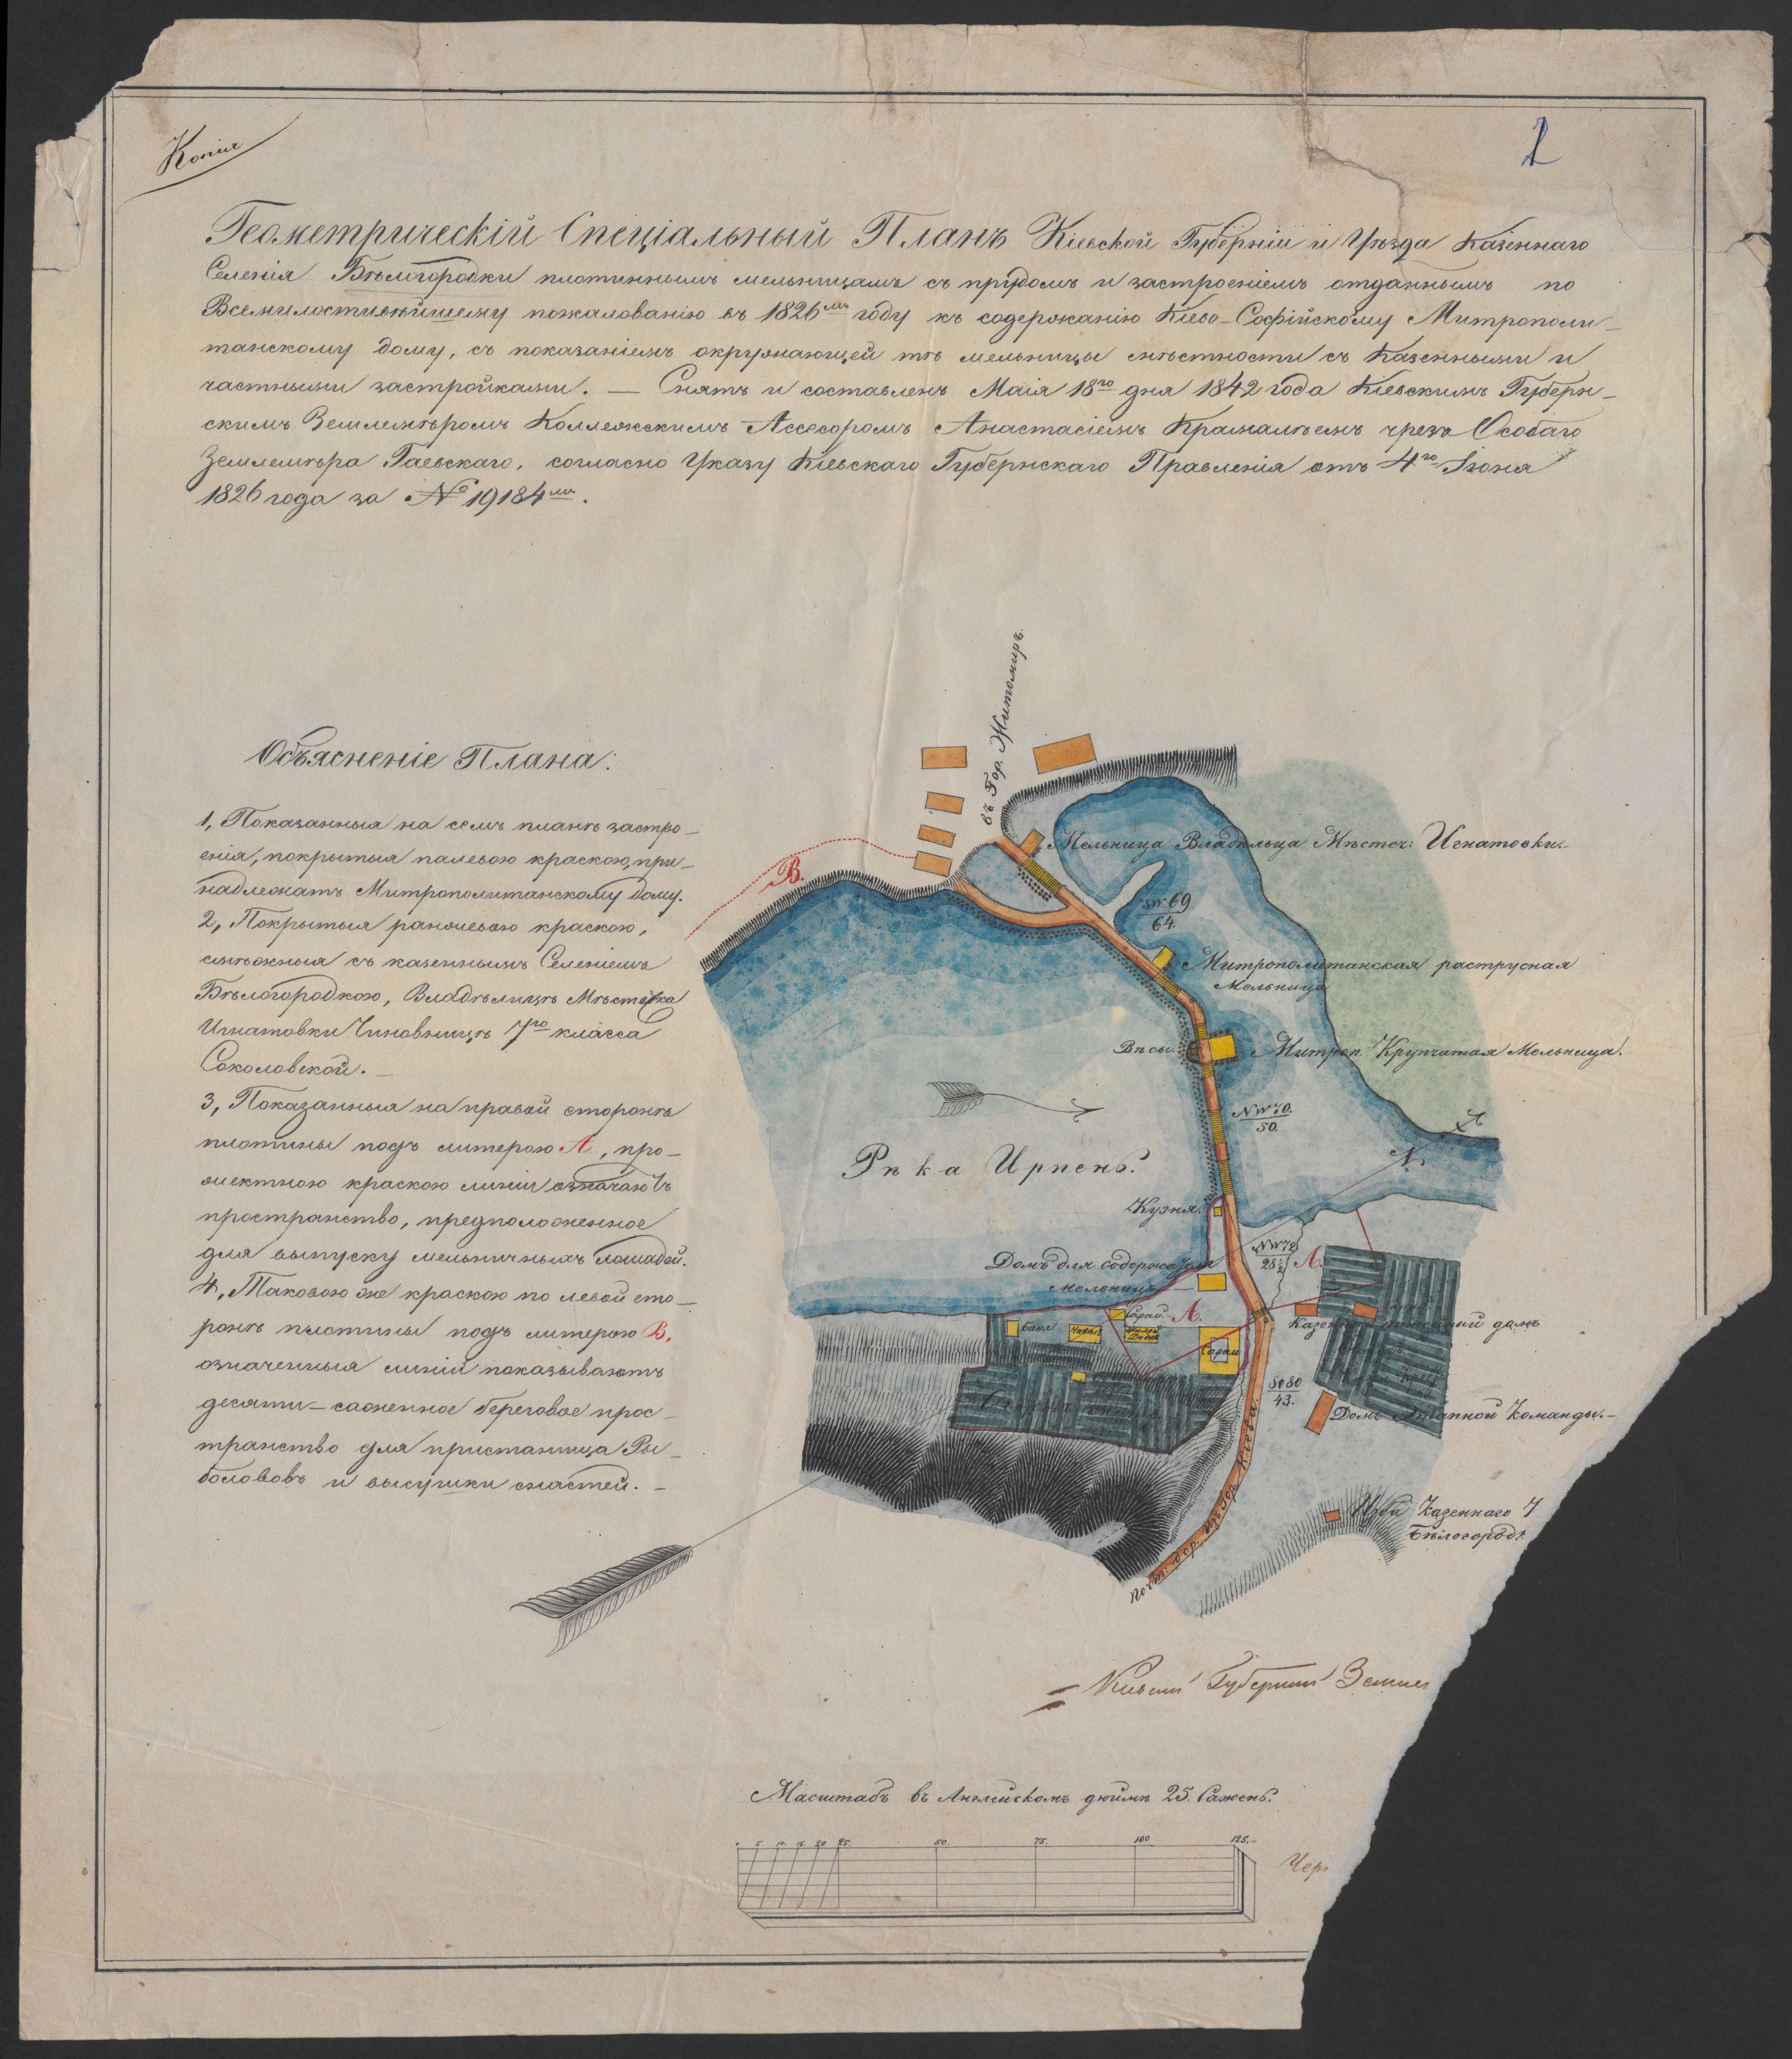 Копія
1
Геометрическій Спеціальный Планъ Кіевской Губерніи и Уѣзда Казеннаго
Селенія Бѣлогородки плотиннымъ мельницамъ съ прудомъ и застроеніемъ отданнымъ по
Всемилостивѣйшему пожалованію въ 1826мъ году къ содержанію Кіево-Софійскому Митрополи-
танскому дому, съ показаніемъ окружающей тѣ мельницы мѣстности съ казенными и
частными застройками. — Снятъ и составленъ Маія 18го дня 1842 года Кіевскимъ Губерн-
скимъ Землемѣромъ Коллежскимъ Ассесоромъ Анастасіемъ чрезъ
Землемѣра Гаевскаго, согласно Указу Кіевскаго Губернскаго Правленія отъ 4го Іюня
1826 года за № 19184мъ.
въ Гор. Житомиръ.
Объясненіе Плана:
1, Показанныя на семъ планѣ застро-
енія, покрытыя палевою краскою, при-
надлежатъ Митрополитанскому дому.
2, Покрытыя ранжевою краскою,
смѣжныя съ казеннымъ Селеніемъ
Бѣлогородкою, Владѣлицѣ Мѣстечка
Игнатовки Чиновницѣ 7го класса
Соколовской. —
3, Показанныя на правой сторонѣ
плотины подъ литерою А, про-
жектною краскою линіи означаютъ
пространство, предположенное
для выпуску мельничныхъ лошадей.
4, Таковою же краскою по левой сто-
ронѣ плотины подъ литерою В,
означенныя линіи показываютъ
десяти-саженное береговое прос-
транство для пристанища Ры-
боловъ и высушки снастей. —
В.
Мельница Владѣльца Мѣстеч: Игнатовки.
SW 69
64.
Митрополитанская раструсная
Мельница
Вѣсы.
Митроп. Крупчатая Мельница.
NW 70.
50.
Рѣка Ирпень.
N.
Кузня.
NW 72
28½
А.
Домъ для содержателя
Мельницъ
Сарай.
А.
Баня
Жилой
Домъ
Сарай
Казенный питейный домъ
SO 80
43.
Домъ Этапной Команды. —
Почт: дор. изъ Гор. Кіева
Изба Казеннаго
Бѣлогород
Кіевскій Губернскій Землем
Масштабъ въ Англійскомъ дюймѣ 25. Сажень.
0 5 10 15 20 25. 50. 75. 100 125. —
Чер